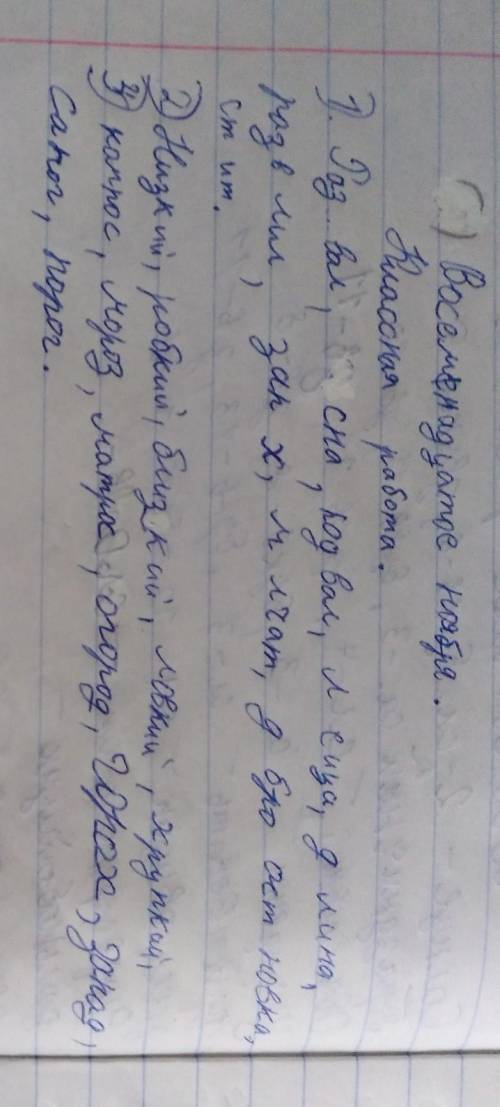 Восемьнадцатое ноября.
Классная работа.
1). Раз вал, сна, подвал, л сица, д лина,
разв лил, зап х, м лчат, д бро ост новка,
ст ит.
2) Низкий, робкий, близкий, ловкий, хрупкий,
3) компос, мороз, матрос, огород, горох, запад,
сапог, порог.